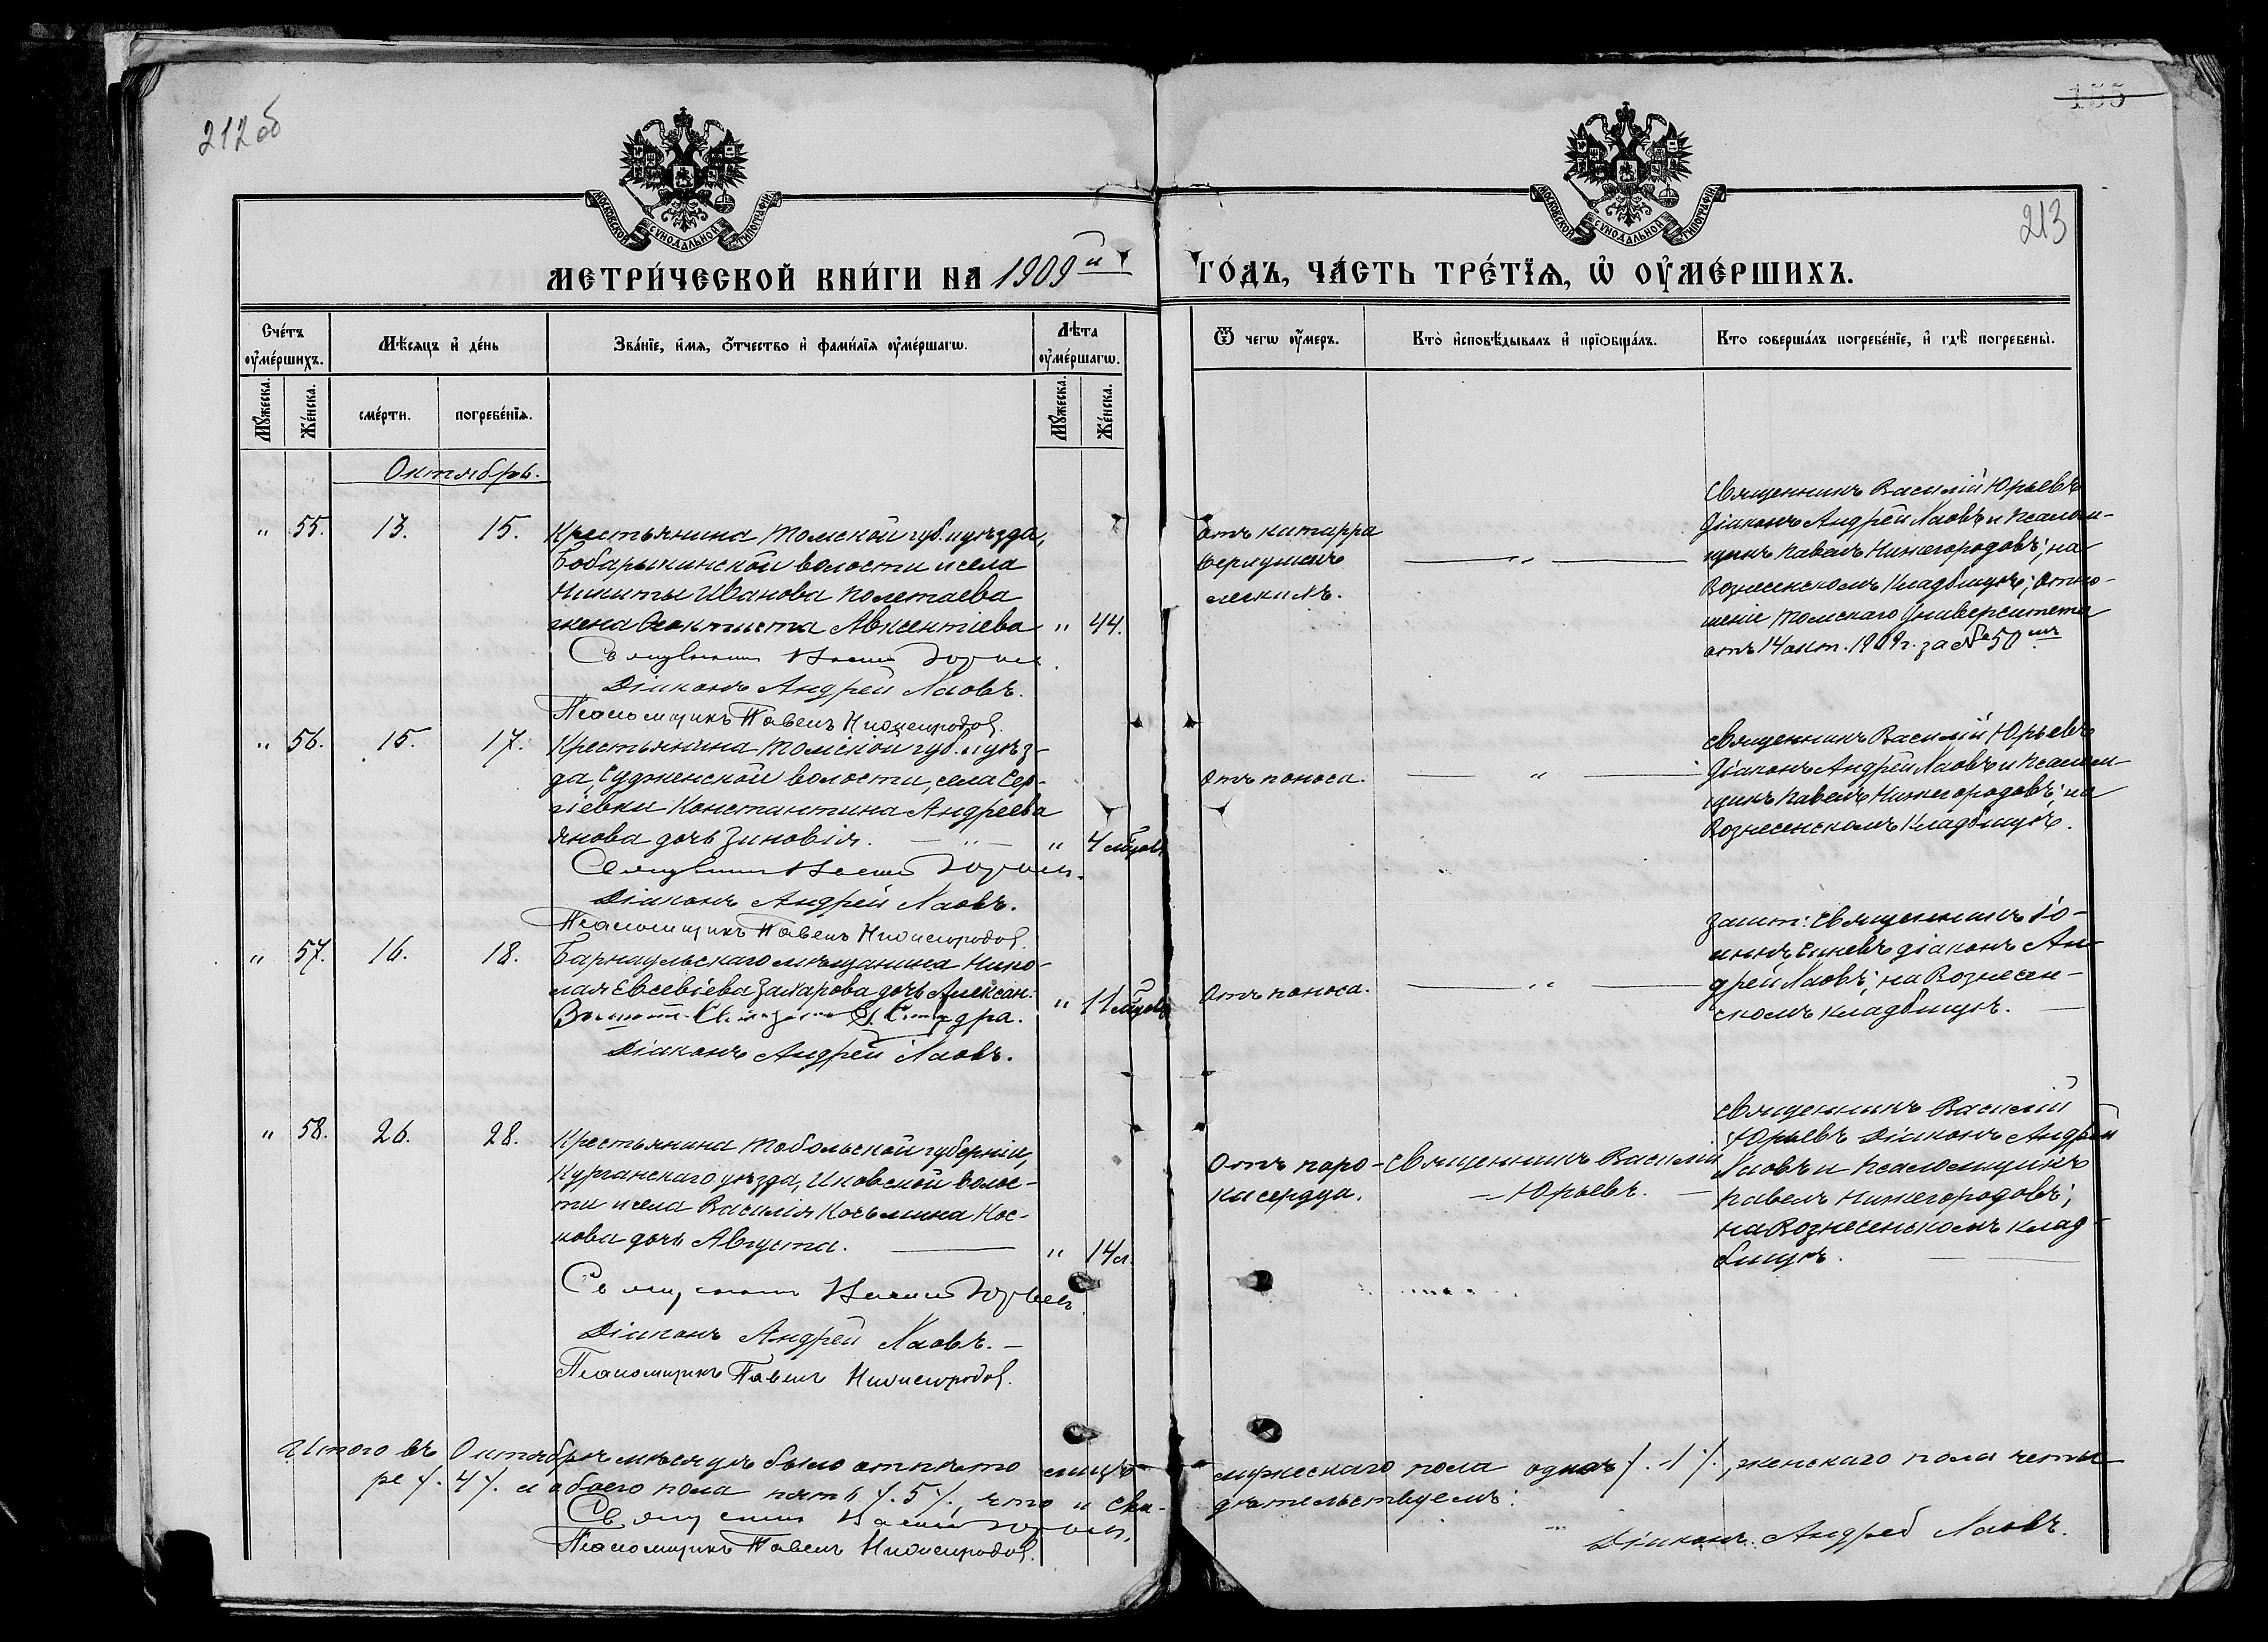 212об
155
213
МОСКОВСКОЙ СУНОДАЛЬНОЙ ТИПОГРАФІИ
МОСКОВСКОЙ СУНОДАЛЬНОЙ ТИПОГРАФІИ
МЕТРИ́ЧЕСКОЙ КНИ́ГИ НА 1909й ГО́ДЪ, ЧА́СТЬ ТРЕ́ТЇѦ, Ѡ҆ ОУ҆МЕ́РШИХЪ.
Сче́тъ оу҆ме́ршихъ.
Мѣ́сяцъ и҆ де́нь
Зва́нїе, и҆́мя, ѻ҆́тчество и҆ фами́лїя оу҆ме́ршагѡ.
Лѣ́та оу҆ме́ршагѡ.
Ѿ чегѡ̀ оу҆́меръ.
Кто̀ и҆сповѣ́дывалъ и҆ прїѡбща́лъ.
Кто соверша́лъ погребе́нїе, и҆ гдѣ̀ погребены̀.
Мꙋ́жеска.
Же́нска.
сме́рти.
погребе́нїя.
Мꙋ́жеска.
Же́нска.
Октябрь.
" 55. 13. 15.
Крестьянина Томской губ. и уѣзда,
Бобарыкинской волости и села
Никиты Иванова Полетаева
жена Ѳеоктиста Авксентіева " 44.
Священникъ Василій Юрьевъ.
Діаконъ Андрей Иловъ.
Псаломщикъ Павелъ Нижегородовъ.
отъ катарра
верхушекъ
легкихъ.
— " —
Священникъ Василій Юрьевъ
Діаконъ Андрей Иловъ и Псалом-
щикъ Павелъ Нижегородовъ; на
Вознесенскомъ кладбищѣ; отно-
шеніе Томскаго Университета
отъ 14 окт. 1909 г. за № 50мъ
" 56. 15. 17.
Крестьянина Томской губ. и уѣз-
да, Судженской волости, села Сер-
гіевки Константина Андреева
Янова дочь Зиновія. — " — " 4 мѣсяц.
Священникъ Василій Юрьевъ.
Діаконъ Андрей Иловъ.
Псаломщикъ Павелъ Нижегородовъ.
Отъ поноса.
— " —
Священникъ Василій Юрьевъ
Діаконъ Андрей Иловъ и Псалом-
щикъ Павелъ Нижегородовъ; на
Вознесенскомъ кладбищѣ.
" 57. 16. 18.
Барнаульскаго мѣщанина Нико-
лая Евсевіева Захарова дочь Алексан- " 11 мѣсяц.
дра.
Діаконъ Андрей Иловъ.
Отъ поноса.
— " —
Зашт: Священникъ Іо-
аннъ Синевъ діаконъ Ан-
дрей Иловъ; на Вознесен-
скомъ кладбищѣ. —
" 58. 26. 28.
Крестьянина Тобольской губерніи,
Курганскаго уѣзда, Иковской волос-
ти и села Василія Косьмина Нос-
кова дочь Августа. — " 14 л.
Священникъ Василій Юрьевъ.
Діаконъ Андрей Иловъ. —
Псаломщикъ Павелъ Нижегородовъ.
Отъ поро-
ка сердца.
Священникъ Василій
— Юрьевъ. —
Священникъ Василій
Юрьевъ Діаконъ Андрей
Иловъ и Псаломщикъ
Павелъ Нижегородовъ;
на Вознесенскомъ клад-
бищѣ. —
Итого въ Октябрѣ мѣсяцѣ было отпѣто лицъ мужескаго пола одинъ /. 1 /., женскаго пола четы-
ре /. 4 /. и обоего пола пять /. 5 /., что и сви-дѣтельствуемъ:
Священникъ Василій Юрьевъ.
Діаконъ Андрей Иловъ.
Псаломщикъ Павелъ Нижегородовъ.